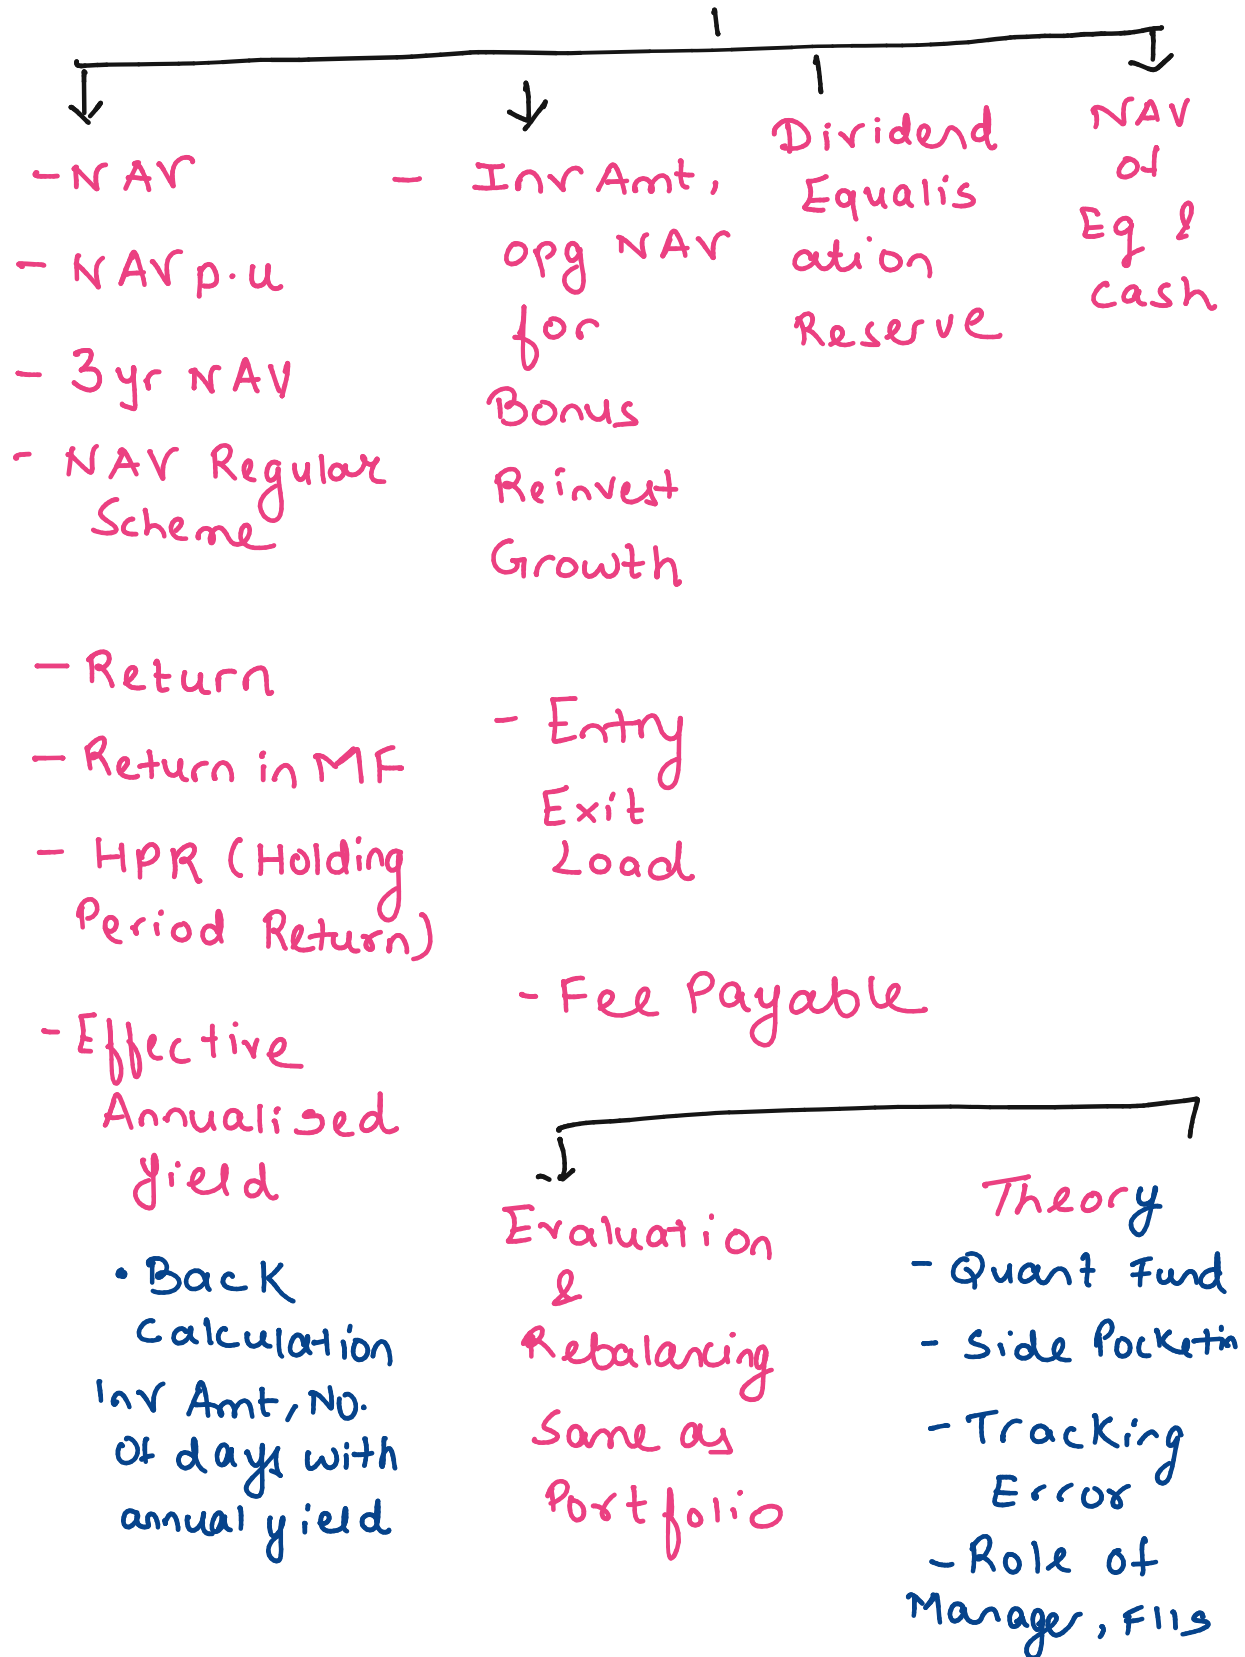 - NAV
- NAV p.u
- 3 yr NAV
- NAV Regular
Scheme
- Return
- Return in MF
- HPR (Holding
Period Return)
- Effective
Annualised
yield
• Back
Calculation
Inv Amt, No.
of days with
annual yield
- Inv Amt,
opg NAV
for
Bonus
Reinvest
Growth
- Entry
Exit
Load
- Fee Payable
Dividend
Equalis
ation
Reserve
NAV
of
Eq &
cash
Evaluation
&
Rebalancing
Same as
Portfolio
Theory
- Quant Fund
- Side Pocketin
- Tracking
Error
- Role of
Manager, FIIs